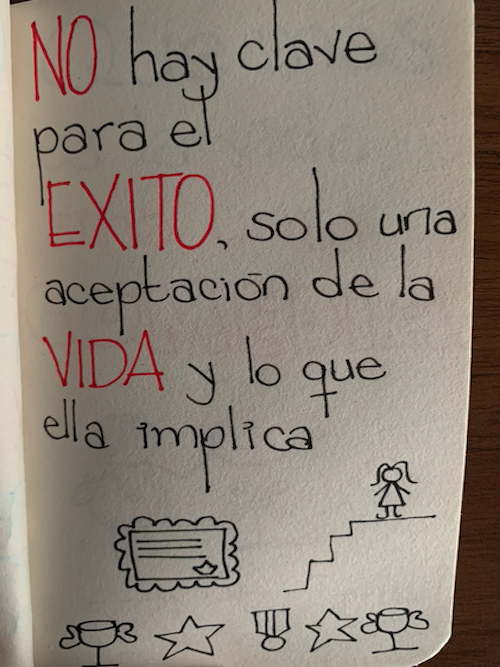 NO hay clave
para el
EXITO, solo una
aceptación de la
VIDA y lo que
ella implica